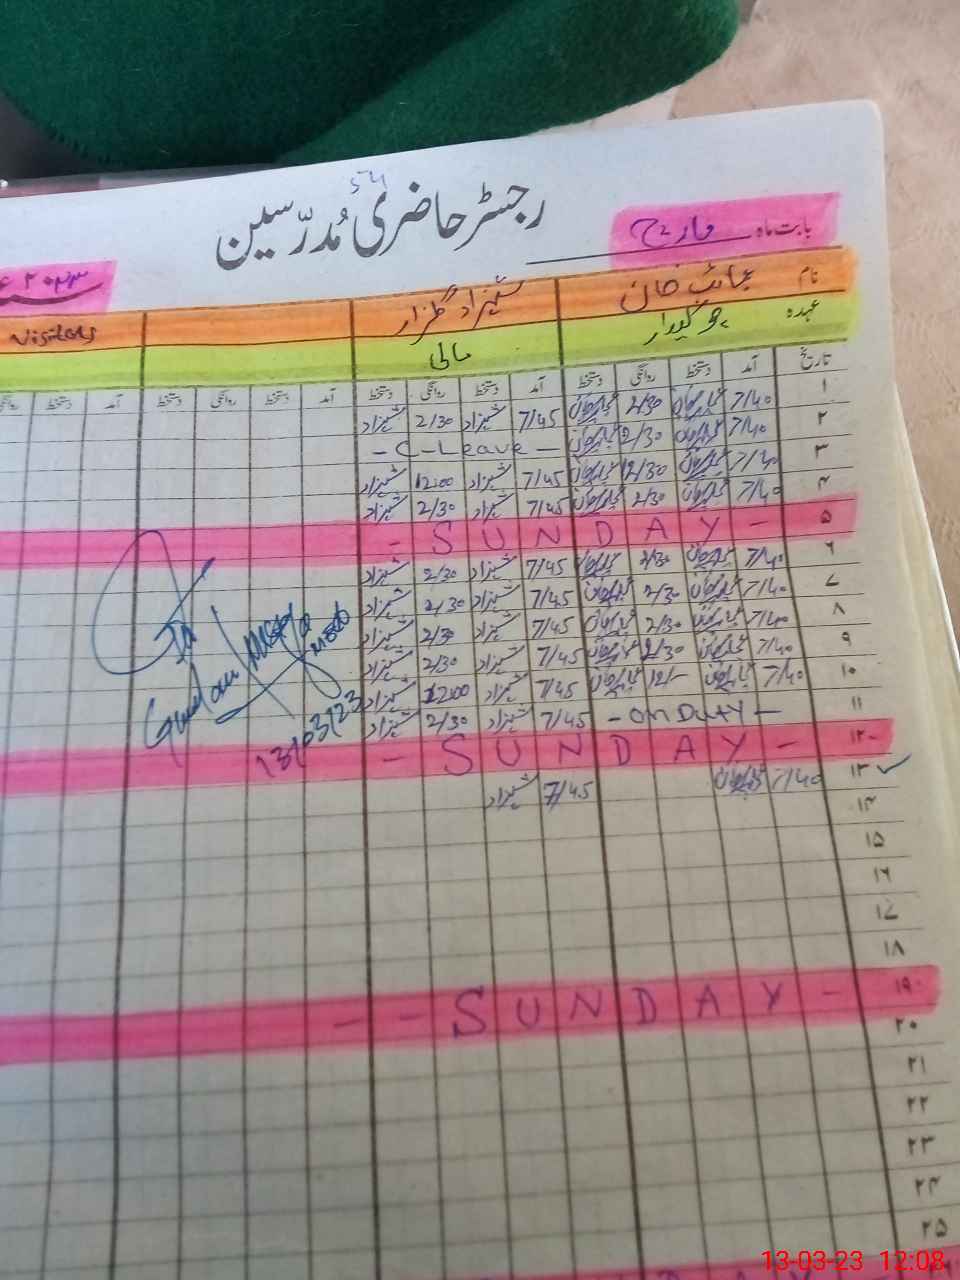 رجسٹر حاضری مُدرّسین
بابت ماہ مارچ
۲۰۲۳
نام عجائب خان شہزاد گلزار Visitors
عہدہ چوکیدار مالی
تاریخ آمد دستخط روانگی دستخط آمد دستخط روانگی دستخط آمد دستخط روانگی دستخط آمد دستخط روانگی
۱ 7/40 2/30 7/45 شہزاد 2/30 شہزاد
۲ 7/40 2/30 - C-Leave -
۳ 7/40 12/30 7/45 شہزاد 12:00 شہزاد
۴ 7/40 2/30 7/45 شہزاد 2/30 شہزاد
۵ - SUNDAY -
۶ 7/40 2/30 7/45 شہزاد 2/30 شہزاد
۷ 7/40 2/30 7/45 شہزاد 2/30 شہزاد
۸ 7/40 2/30 7/45 شہزاد 2/30 شہزاد
۹ 7/40 2/30 7/45 شہزاد 2/30 شہزاد
۱۰ 7/40 12/- 7/45 شہزاد 12:00 شہزاد
۱۱ - ON DUTY - 7/45 شہزاد 2/30 شہزاد
۱۲ - SUNDAY -
۱۳ 7/40 7/45 شہزاد
13/03/23
۱۴
۱۵
۱۶
۱۷
۱۸
۱۹ - SUNDAY - -
۲۰
۲۱
۲۲
۲۳
۲۴
۲۵
13-03-23 12:08